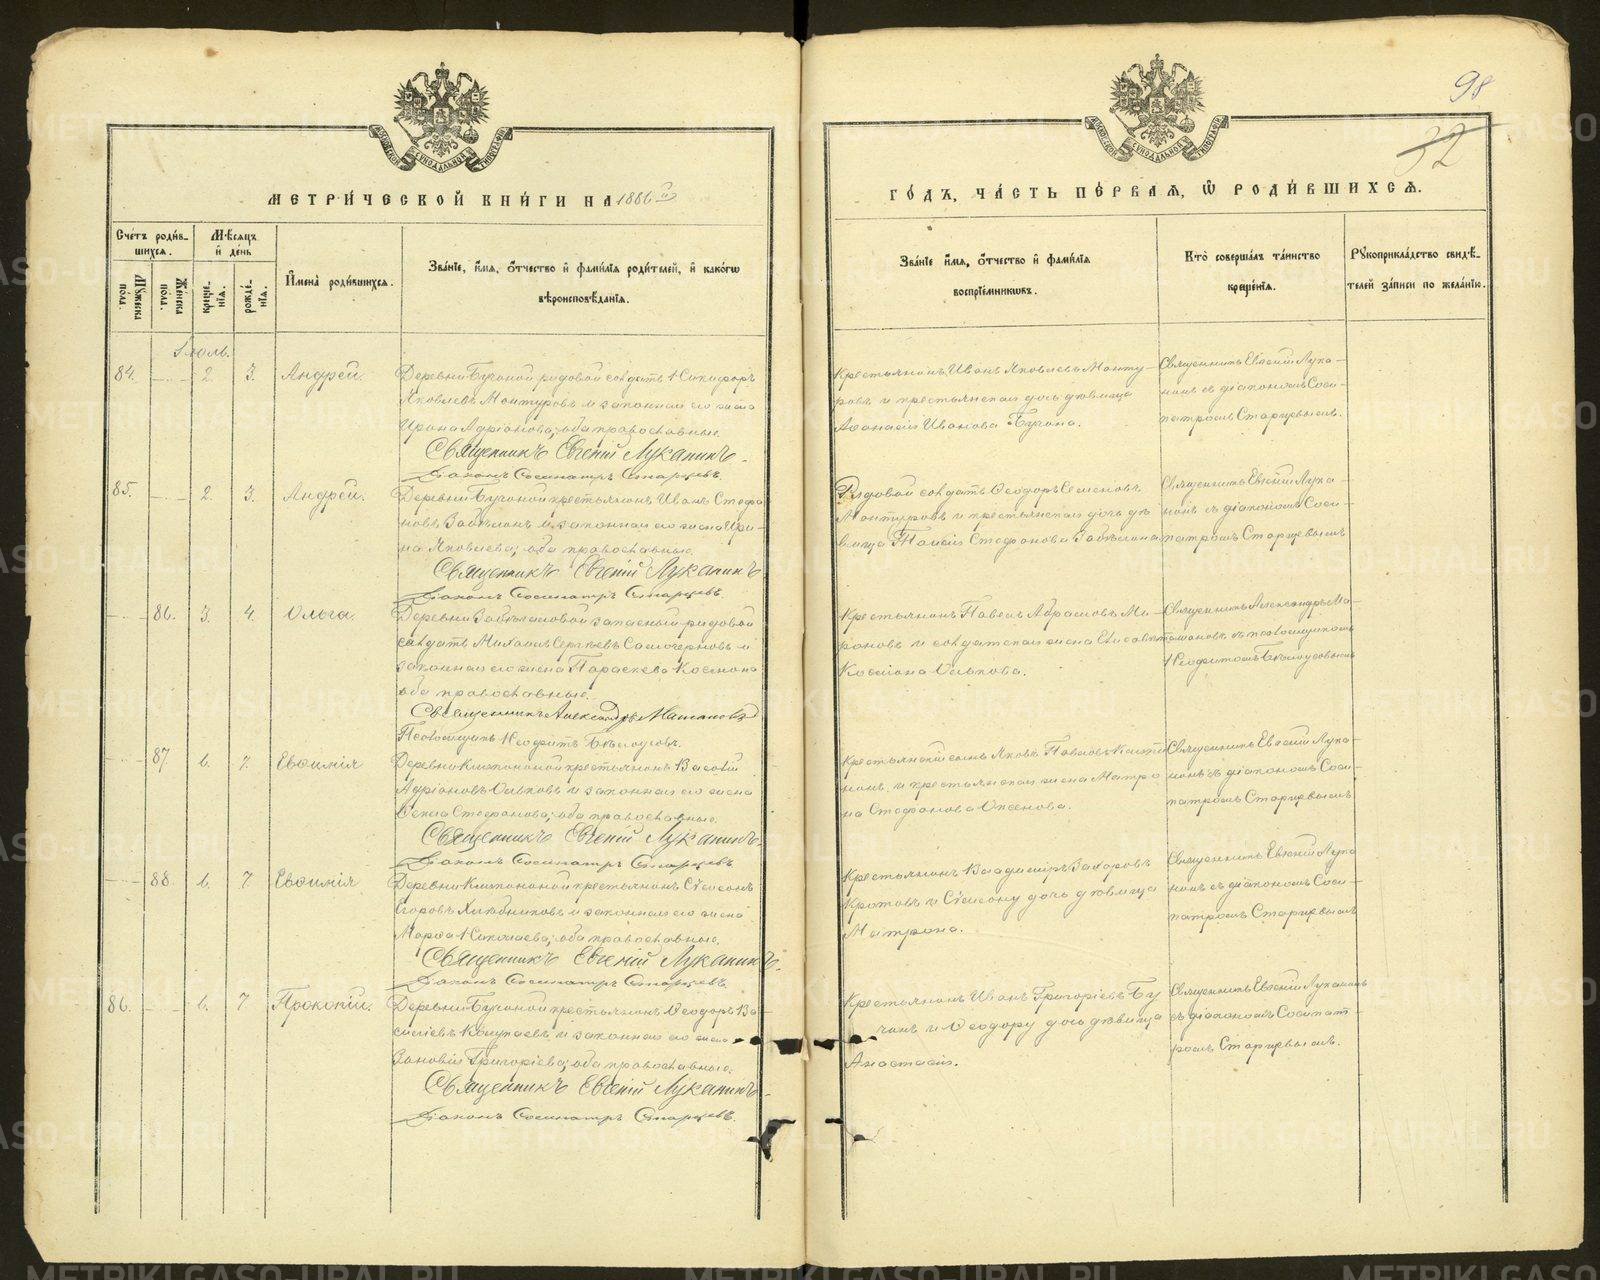 98
32
МЕТРИ́ЧЕСКОЙ КНИ́ГИ НА 1886 й
ГО́ДЪ, ЧА́СТЬ ПЕ́РВАЯ, Ѡ РОДИ́ВШИХСЯ.
Сче́тъ роди́в-
шихся.
Му́жеска
по́ла.
Же́нска
пола.
Мѣсяцъ
и́ де́нь
креще-
нія.
рожде́-
нія.
И҆мена̀ роди́вшихся.
Зва́нїе, и҆́мя, ѻ҆́тчество и҆ фами́лїя роди́телей, и҆ како́гѡ
вѣроисповѣ́данїя.
Зва́нїе и҆́мя, ѻ҆́тчество и҆ фами́лїя
воспрїе́мникѡвъ.
Кто̀ соверша́лъ та́инство
креще́нїя.
Рꙋкоприкла́дство свидѣ́-
телей за́писи по жела́нїю.
Іюль.
84. 2. 3. Андрей.
Деревни Бучиной рядовой солдатъ Никифоръ
Яковлевъ Мантуровъ и законная его жена
Ирина Адріанова; оба православные.
Священникъ Евгеній Луканинъ.
Діаконъ Сосипатръ Старцевъ.
Крестьянинъ Иванъ Яковлевъ Манту-
ровъ и крестьянская дочь дѣвица
Афанасія Иванова Бучина.
Священникъ Евгеній Лука-
нинъ съ діакономъ Соси-
патромъ Старцевымъ.
85. 2. 3. Андрей.
Деревни Бучиной крестьянинъ Иванъ Стефа-
новъ Забѣлинъ и законная его жена Ири-
на Яковлева; оба православные.
Священникъ Евгеній Луканинъ
Діаконъ Сосипатръ Старцевъ.
Рядовой солдатъ Ѳеодоръ Семеновъ
Мантуровъ и крестьянская дочь дѣ-
вица Таисія Стефанова Забѣлина
Священникъ Евгеній Лука-
нинъ съ діакономъ Соси-
патромъ Старцевымъ
86. 3. 4. Ольга.
запасный рядовой
солдатъ Михаилъ Сергѣевъ Самочерновъ и
законная его жена Параскева Космина
оба православные.
Священникъ Александръ Машановъ
Псаломщикъ Неофитъ Бѣлоусовъ.
Крестьянинъ Павелъ Абрамовъ Ми-
роновъ и солдатская жена Елисавета
Священникъ Александръ Ма-
шановъ съ псаломщикомъ
Неофитомъ Бѣлоусовымъ
87 6. 7. Евѳимія
крестьянинъ Василій
Адріановъ и законная его жена
Стефанова; оба православные.
Священникъ Евгеній Луканинъ.
Діаконъ Сосипатръ Старцевъ
Крестьянскій сынъ Яковъ Павловъ
и крестьянская жена Матро-
на Стефанова Аксенова.
Священникъ Евгеній Лука-
нинъ съ діакономъ Соси-
патромъ Старцевымъ
88. 6. 7. Евѳимія
крестьянинъ Сѵмеонъ
Егоровъ Хлѣбниковъ и законная его жена
Марѳа Николаева; оба православные.
Священникъ Евгеній Луканинъ.
Діаконъ Сосипатръ Старцевъ.
Крестьянинъ Владиміръ Захаровъ
Кротовъ и Сѵмеону дочь дѣвица
Матрона.
Священникъ Евгеній Лука-
нинъ съ діакономъ Соси-
патромъ Старцевымъ
86. 6. 7 Прокопій.
Деревни Бучиной крестьянинъ Ѳеодоръ Ва-
сильевъ и законная его жена
Зиновія Григоріева; оба православные.
Священникъ Евгеній Луканинъ.
Діаконъ Сосипатръ Старцевъ.
Крестьянинъ Иванъ Григоріевъ Бу-
чинъ и Ѳеодору дочь дѣвица
Анастасія.
Священникъ Евгеній Луканинъ
съ діакономъ Сосипат-
ромъ Старцевымъ.